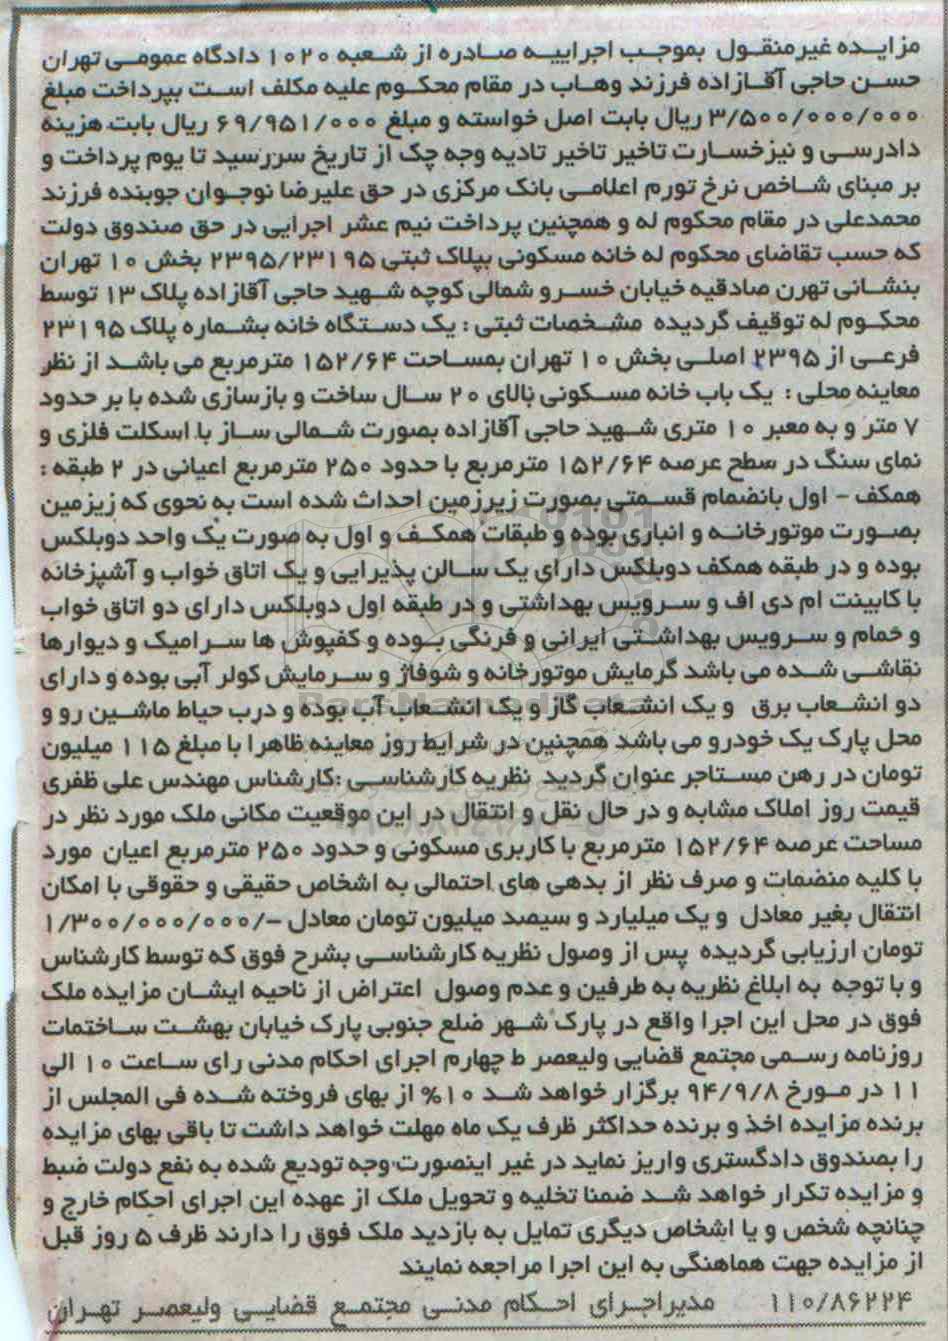 مزایده غیرمنقول بموجب اجراییه صادره از شعبه ۱۰۲۰ دادگاه عمومی تهران
حسن حاجی آقازاده فرزند وهاب در مقام محکوم علیه مکلف است بپرداخت مبلغ
۳/۵۰۰/۰۰۰/۰۰۰ ریال بابت اصل خواسته و مبلغ ۶۹/۹۵۱/۰۰۰ ریال بابت هزینه
دادرسی و نیزخسارت تاخیر تاخیر تادیه وجه چک از تاریخ سررسید تا یوم پرداخت و
بر مبنای شاخص نرخ تورم اعلامی بانک مرکزی در حق علیرضا نوجوان جوبنده فرزند
محمدعلی در مقام محکوم له و همچنین پرداخت نیم عشر اجرایی در حق صندوق دولت
که حسب تقاضای محکوم له خانه مسکونی بپلاک ثبتی ۲۳۹۵/۲۳۱۹۵ بخش ۱۰ تهران
بنشانی تهرن صادقیه خیابان خسرو شمالی کوچه شهید حاجی آقازاده پلاک ۱۳ توسط
محکوم له توقیف گردیده مشخصات ثبتی : یک دستگاه خانه بشماره پلاک ۲۳۱۹۵
فرعی از ۲۳۹۵ اصلی بخش ۱۰ تهران بمساحت ۱۵۲/۶۴ مترمربع می باشد از نظر
معاینه محلی : یک باب خانه مسکونی بالای ۲۰ سال ساخت و بازسازی شده با بر حدود
۷ متر و به معبر ۱۰ متری شهید حاجی آقازاده بصورت شمالی ساز با اسکلت فلزی و
نمای سنگ در سطح عرصه ۱۵۲/۶۴ مترمربع با حدود ۲۵۰ مترمربع اعیانی در ۲ طبقه :
همکف - اول بانضمام قسمتی بصورت زیرزمین احداث شده است به نحوی که زیزمین
بصورت موتورخانه و انباری بوده و طبقات همکف و اول به صورت یک واحد دوبلکس
بوده و در طبقه همکف دوبلکس دارای یک سالن پذیرایی و یک اتاق خواب و آشپزخانه
با کابینت ام دی اف و سرویس بهداشتی و در طبقه اول دوبلکس دارای دو اتاق خواب
و حمام و سرویس بهداشتی ایرانی و فرنگی بوده و کفپوش ها سرامیک و دیوارها
نقاشی شده می باشد گرمایش موتورخانه و شوفاژ و سرمایش کولر آبی بوده و دارای
دو انشعاب برق و یک انشعاب گاز و یک انشعاب آب بوده و درب حیاط ماشین رو و
محل پارک یک خودرو می باشد همچنین در شرایط روز معاینه ظاهرا با مبلغ ۱۱۵ میلیون
تومان در رهن مستاجر عنوان گردید نظریه کارشناسی :کارشناس مهندس علی ظفری
قیمت روز املاک مشابه و در حال نقل و انتقال در این موقعیت مکانی ملک مورد نظر در
مساحت عرصه ۱۵۲/۶۴ مترمربع با کاربری مسکونی و حدود ۲۵۰ مترمربع اعیان مورد
با کلیه منضمات و صرف نظر از بدهی های احتمالی به اشخاص حقیقی و حقوقی با امکان
انتقال بغیر معادل و یک میلیارد و سیصد میلیون تومان معادل -/۱/۳۰۰/۰۰۰/۰۰۰
تومان ارزیابی گردیده پس از وصول نظریه کارشناسی بشرح فوق که توسط کارشناس
و با توجه به ابلاغ نظریه به طرفین و عدم وصول اعتراض از ناحیه ایشان مزایده ملک
فوق در محل این اجرا واقع در پارک شهر ضلع جنوبی پارک خیابان بهشت ساختمات
روزنامه رسمی مجتمع قضایی ولیعصر ط چهارم اجرای احکام مدنی رای ساعت ۱۰ الی
۱۱ در مورخ ۹۴/۹/۸ برگزار خواهد شد ۱۰% از بهای فروخته شده فی المجلس از
برنده مزایده اخذ و برنده حداکثر ظرف یک ماه مهلت خواهد داشت تا باقی بهای مزایده
را بصندوق دادگستری واریز نماید در غیر اینصورت وجه تودیع شده به نفع دولت ضبط
و مزایده تکرار خواهد شد ضمنا تخلیه و تحویل ملک از عهده این اجرای احکام خارج و
چنانچه شخص و یا اشخاص دیگری تمایل به بازدید ملک فوق را دارند ظرف ۵ روز قبل
از مزایده جهت هماهنگی به این اجرا مراجعه نمایند
۱۱۰/۸۶۲۲۴ مدیراجرای احکام مدنی مجتمع قضایی ولیعصر تهران